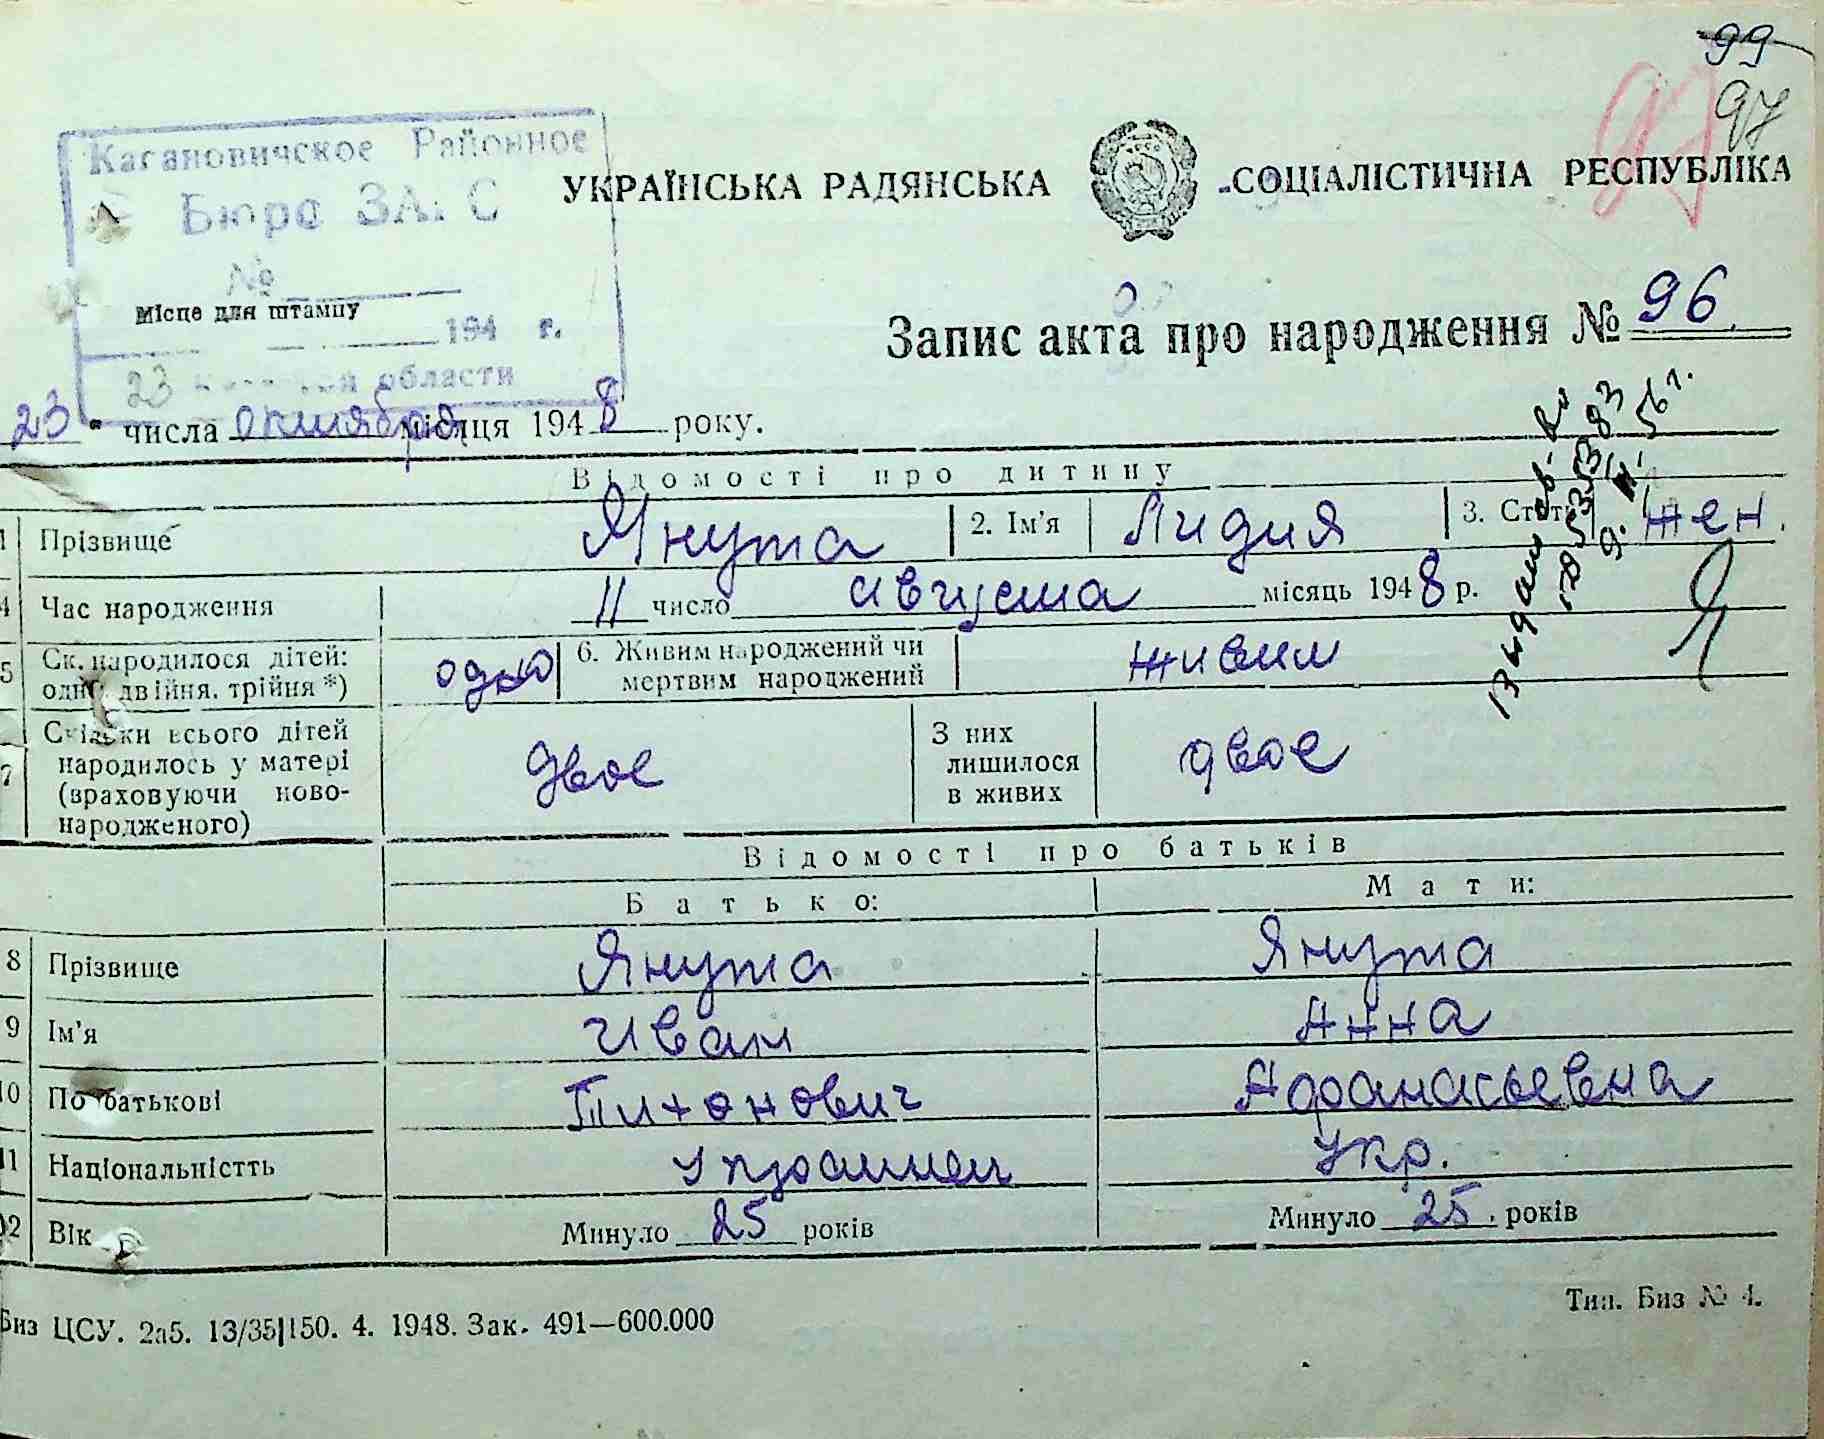 99
97
97
Кагановичское Районное
Бюро ЗАГС
№
194 г.
области
Місце для штампу
УКРАЇНСЬКА РАДЯНСЬКА СОЦІАЛІСТИЧНА РЕСПУБЛІКА
Запис акта про народження № 96
23 числа октября місяця 1948 року.
Відомості про дитину
1 Прізвище Янута 2. Ім'я Лидия 3. Стать жен.
4 Час народження 11 число августа місяць 1948 р.
5 Ск. народилося дітей: одно, двійня, трійня *) одно 6. Живим народжений чи мертвим народжений живим
7 Скільки всього дітей народилось у матері (враховуючи ново-народженого) двое З них лишилося в живих двое
Відомості про батьків
Батько: Мати:
8 Прізвище Янута Янута
9 Ім'я Иван Анна
10 По батькові Тихонович Афанасьевна
11 Національністть украинец Укр.
12 Вік Минуло 25 років Минуло 25 років
Биз ЦСУ. 2а5. 13/35|150. 4. 1948. Зак. 491—600.000
Тип. Биз № 4.